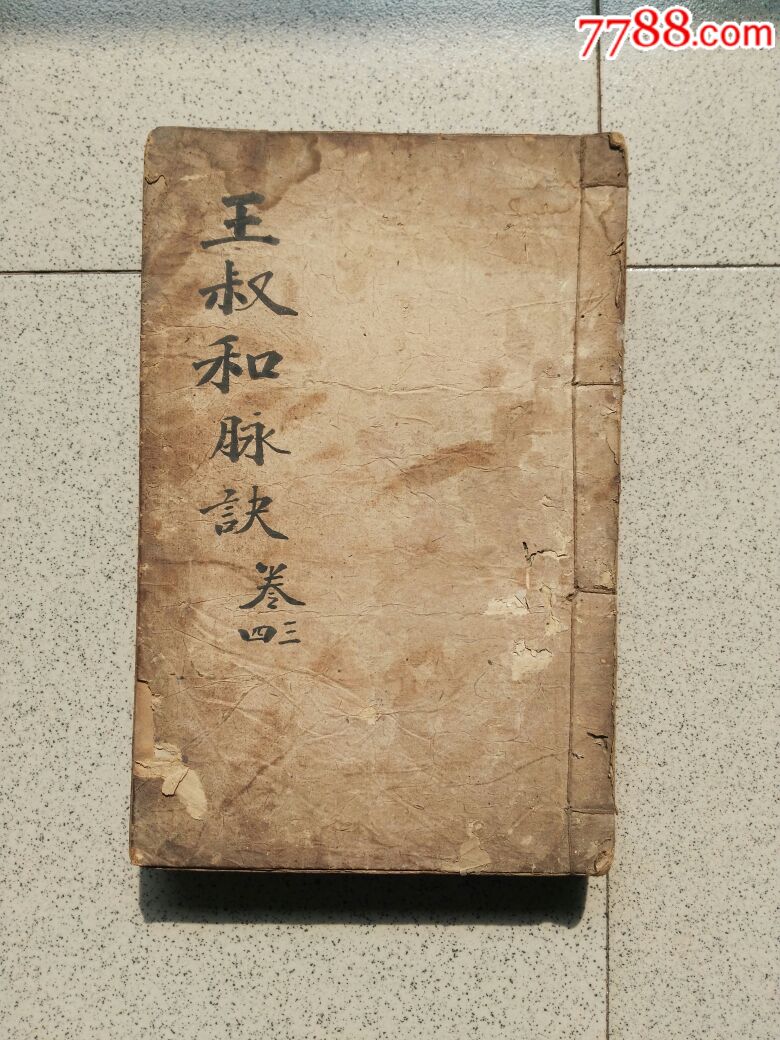 7788.com
王叔和脉訣
卷
三
四